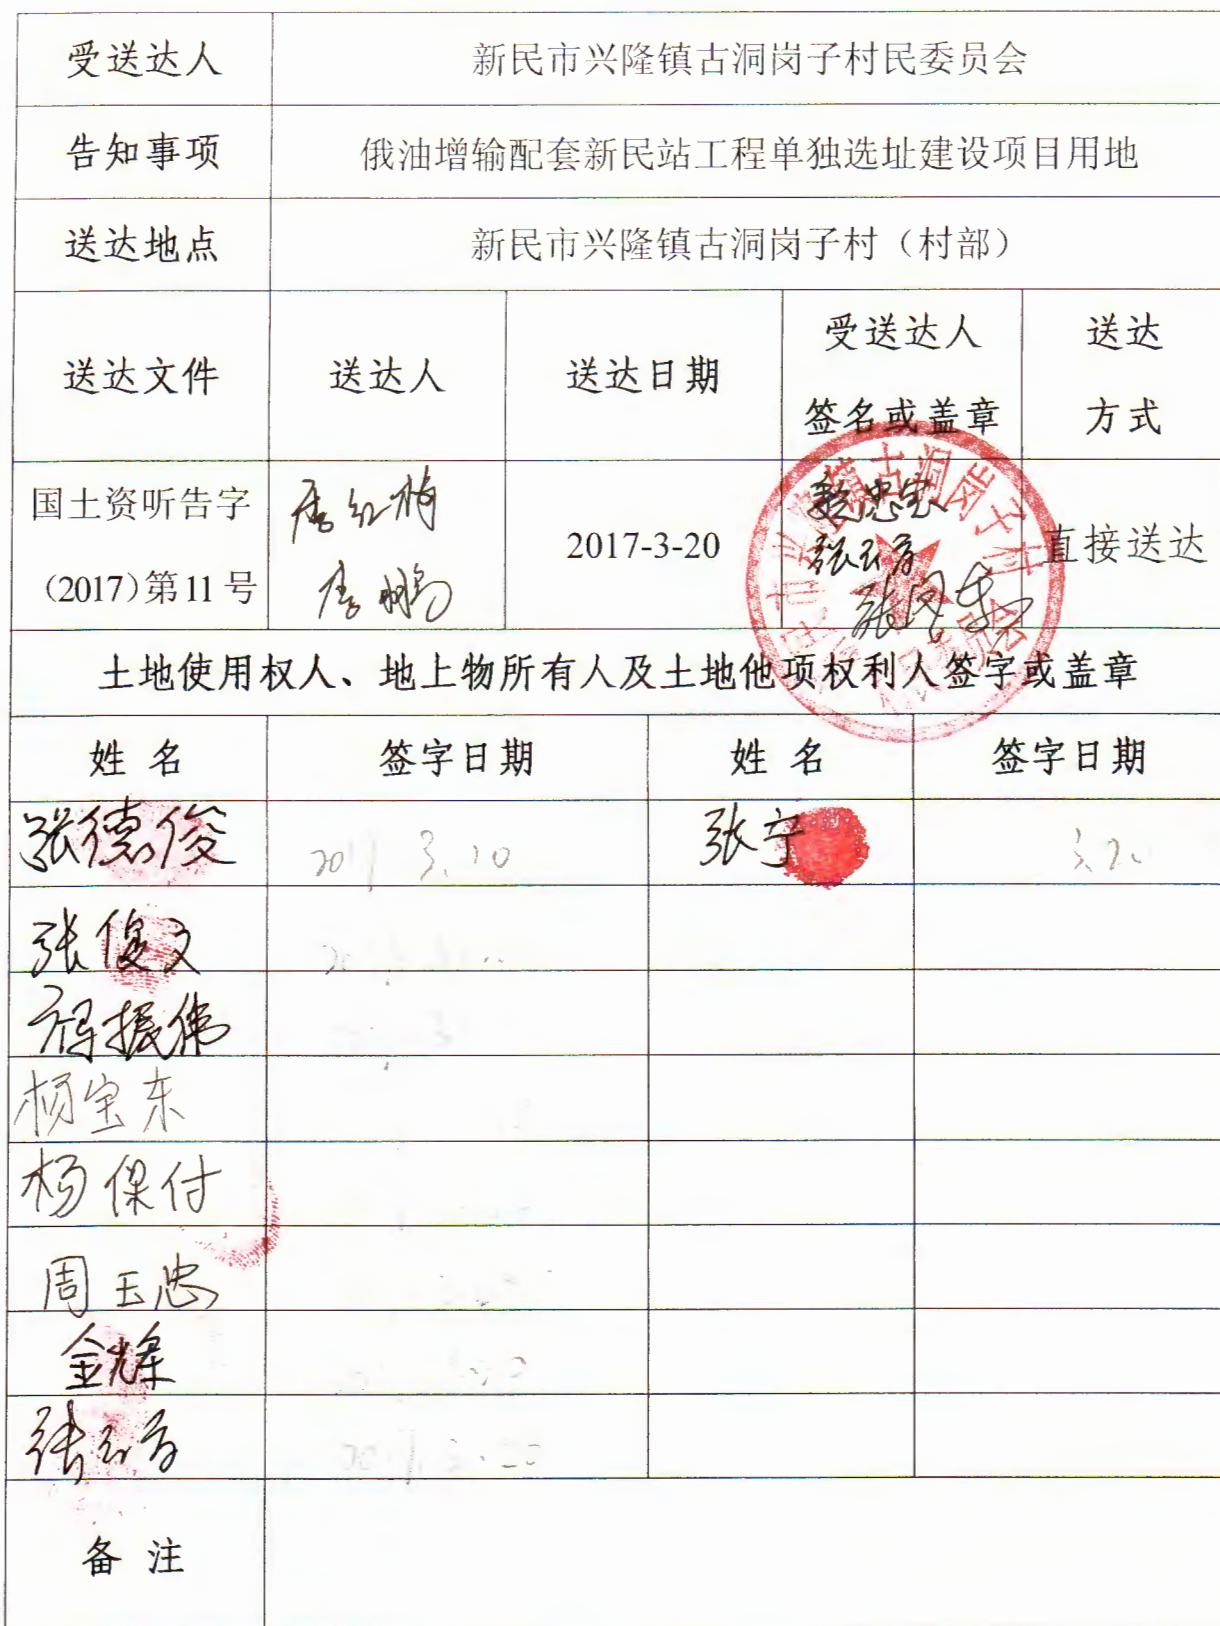 受送达人 新民市兴隆镇古洞岗子村民委员会
告知事项 俄油增输配套新民站工程单独选址建设项目用地
送达地点 新民市兴隆镇古洞岗子村（村部）
送达文件 送达人 送达日期 受送达人签名或盖章 送达方式
国土资听告字
(2017)第11号
唐红梅
唐鹏
2017-3-20
张云彦
直接送达
土地使用权人、地上物所有人及土地他项权利人签字或盖章
姓名 签字日期 姓名 签字日期
张德俊 2017 3.20 张宁 3.20
张俊文
杨宝东
杨保付
周玉忠
金辉
备注